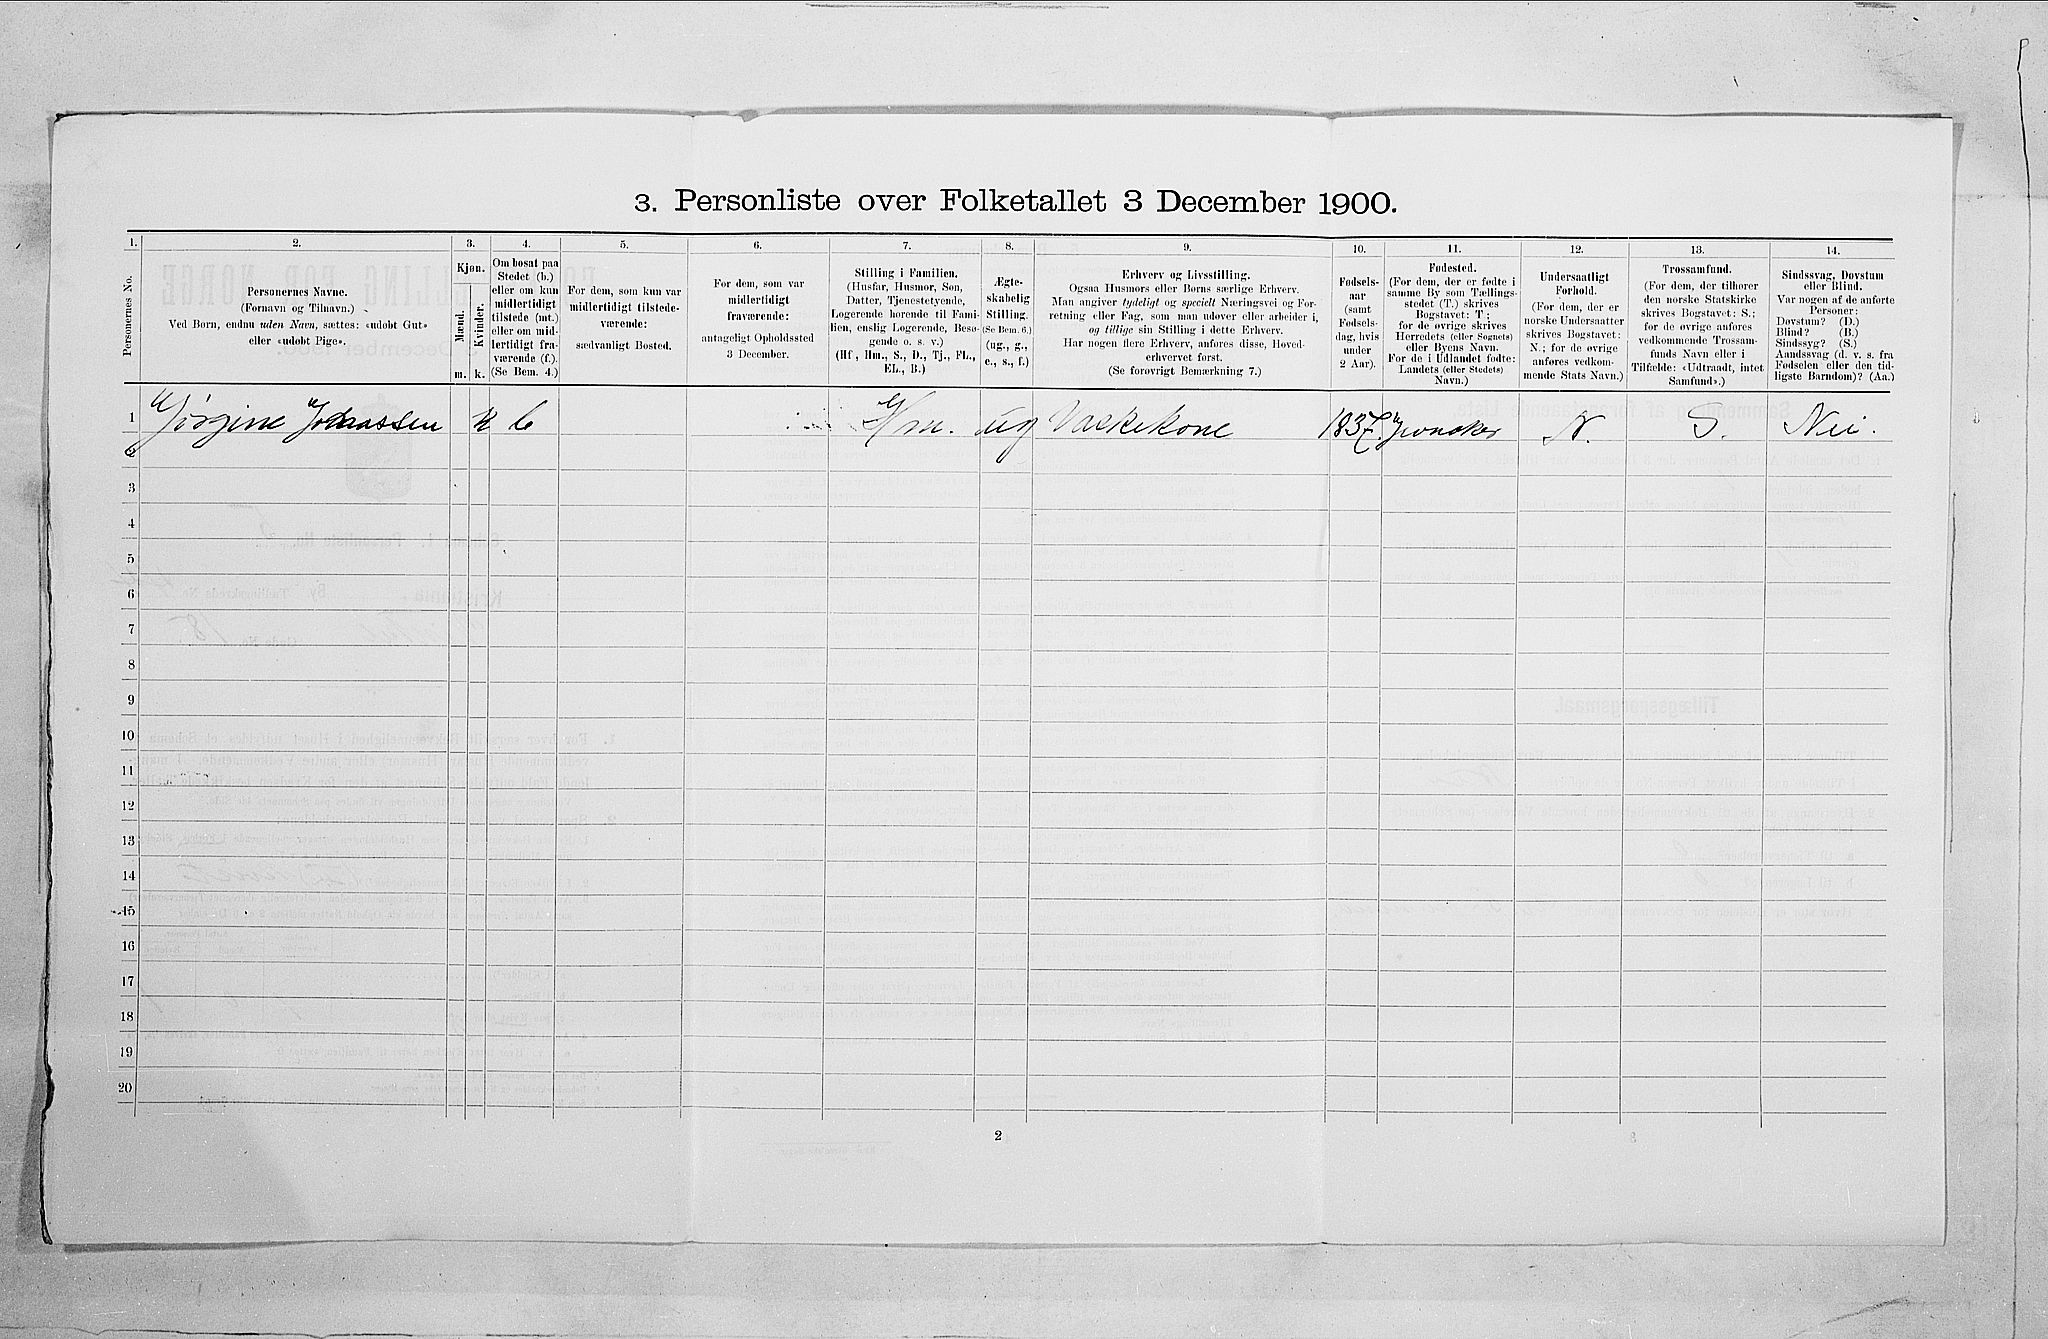 3. Personliste over Folketallet 3 December 1900.
1. 2. 3. 4. 5. 6. 7. 8. 9. 10. 11. 12. 13. 14.
Personernes No.
Personernes Navne.
(Fornavn og Tilnavn.)
Ved Børn, endnu uden Navn, sættes: «udøbt Gut»
eller «udøbt Pige».
Kjøn.
Mænd.
Kvinder.
m. k.
Om bosat paa
Stedet (b.)
eller om kun
midlertidigt
tilstede (mt.)
eller om mid-
lertidigt fra-
værende (f.).
(Se Bem. 4.)
For dem, som kun var
midlertidigt tilstede-
værende:
sædvanligt Bosted.
For dem, som var
midlertidigt
fraværende:
antageligt Opholdssted
3 December.
Stilling i Familien.
(Husfar, Husmor, Søn,
Datter, Tjenestetyende,
Logerende hørende til Fami-
lien, enslig Logerende, Besø-
gende o. s. v.)
(Hf., Hm., S., D., Tj., FL.,
EL., B.)
Ægte-
skabelig
Stilling.
(Se Bem. 6.)
(ug., g.,
e., s., f.)
Erhverv og Livsstilling.
Ogsaa Husmors eller Børns særlige Erhverv.
Man angiver tydeligt og specielt Næringsvei og For-
retning eller Fag, som man udøver eller arbeider i,
og tillige sin Stilling i dette Erhverv.
Har nogen flere Erhverv, anføres disse, Hoved-
erhvervet først.
(Se forøvrigt Bemærkning 7.)
Fødsels-
aar
(samt
Fødsels-
dag, hvis
under
2 Aar).
Fødested.
(For dem, der er fødte i
samme By som Tællings-
stedet (T.) skrives
Bogstavet: T;
for de øvrige skrives
Herredets (eller Sognets)
eller Byens Navn.
For de i Udlandet fødte:
Landets (eller Stedets)
Navn.)
Undersaatligt
Forhold.
(For dem, der er
norske Undersaatter
skrives Bogstavet:
N.; for de øvrige
anføres vedkom-
mende Stats Navn.)
Trossamfund.
(For dem, der tilhører
den norske Statskirke
skrives Bogstavet: S.;
for de øvrige anføres
vedkommende Trossam-
funds Navn eller i
Tilfælde: «Udtraadt, intet
Samfund».)
Sindssvag, Døvstum
eller Blind.
Var nogen af de anførte
Personer:
Døvstum? (D.)
Blind? (B.)
Sindssyg? (S.)
Aandssvag (d. v. s. fra
Fødselen eller den tid-
ligste Barndom)? (Aa.)
1 Jörgine Johnassen k b Hm. ug Vaskekone 1837. N. S. Nei.
2
3
4
5
6
7
8
9
10
11
12
13
14
15
16
17
18
19
20
2